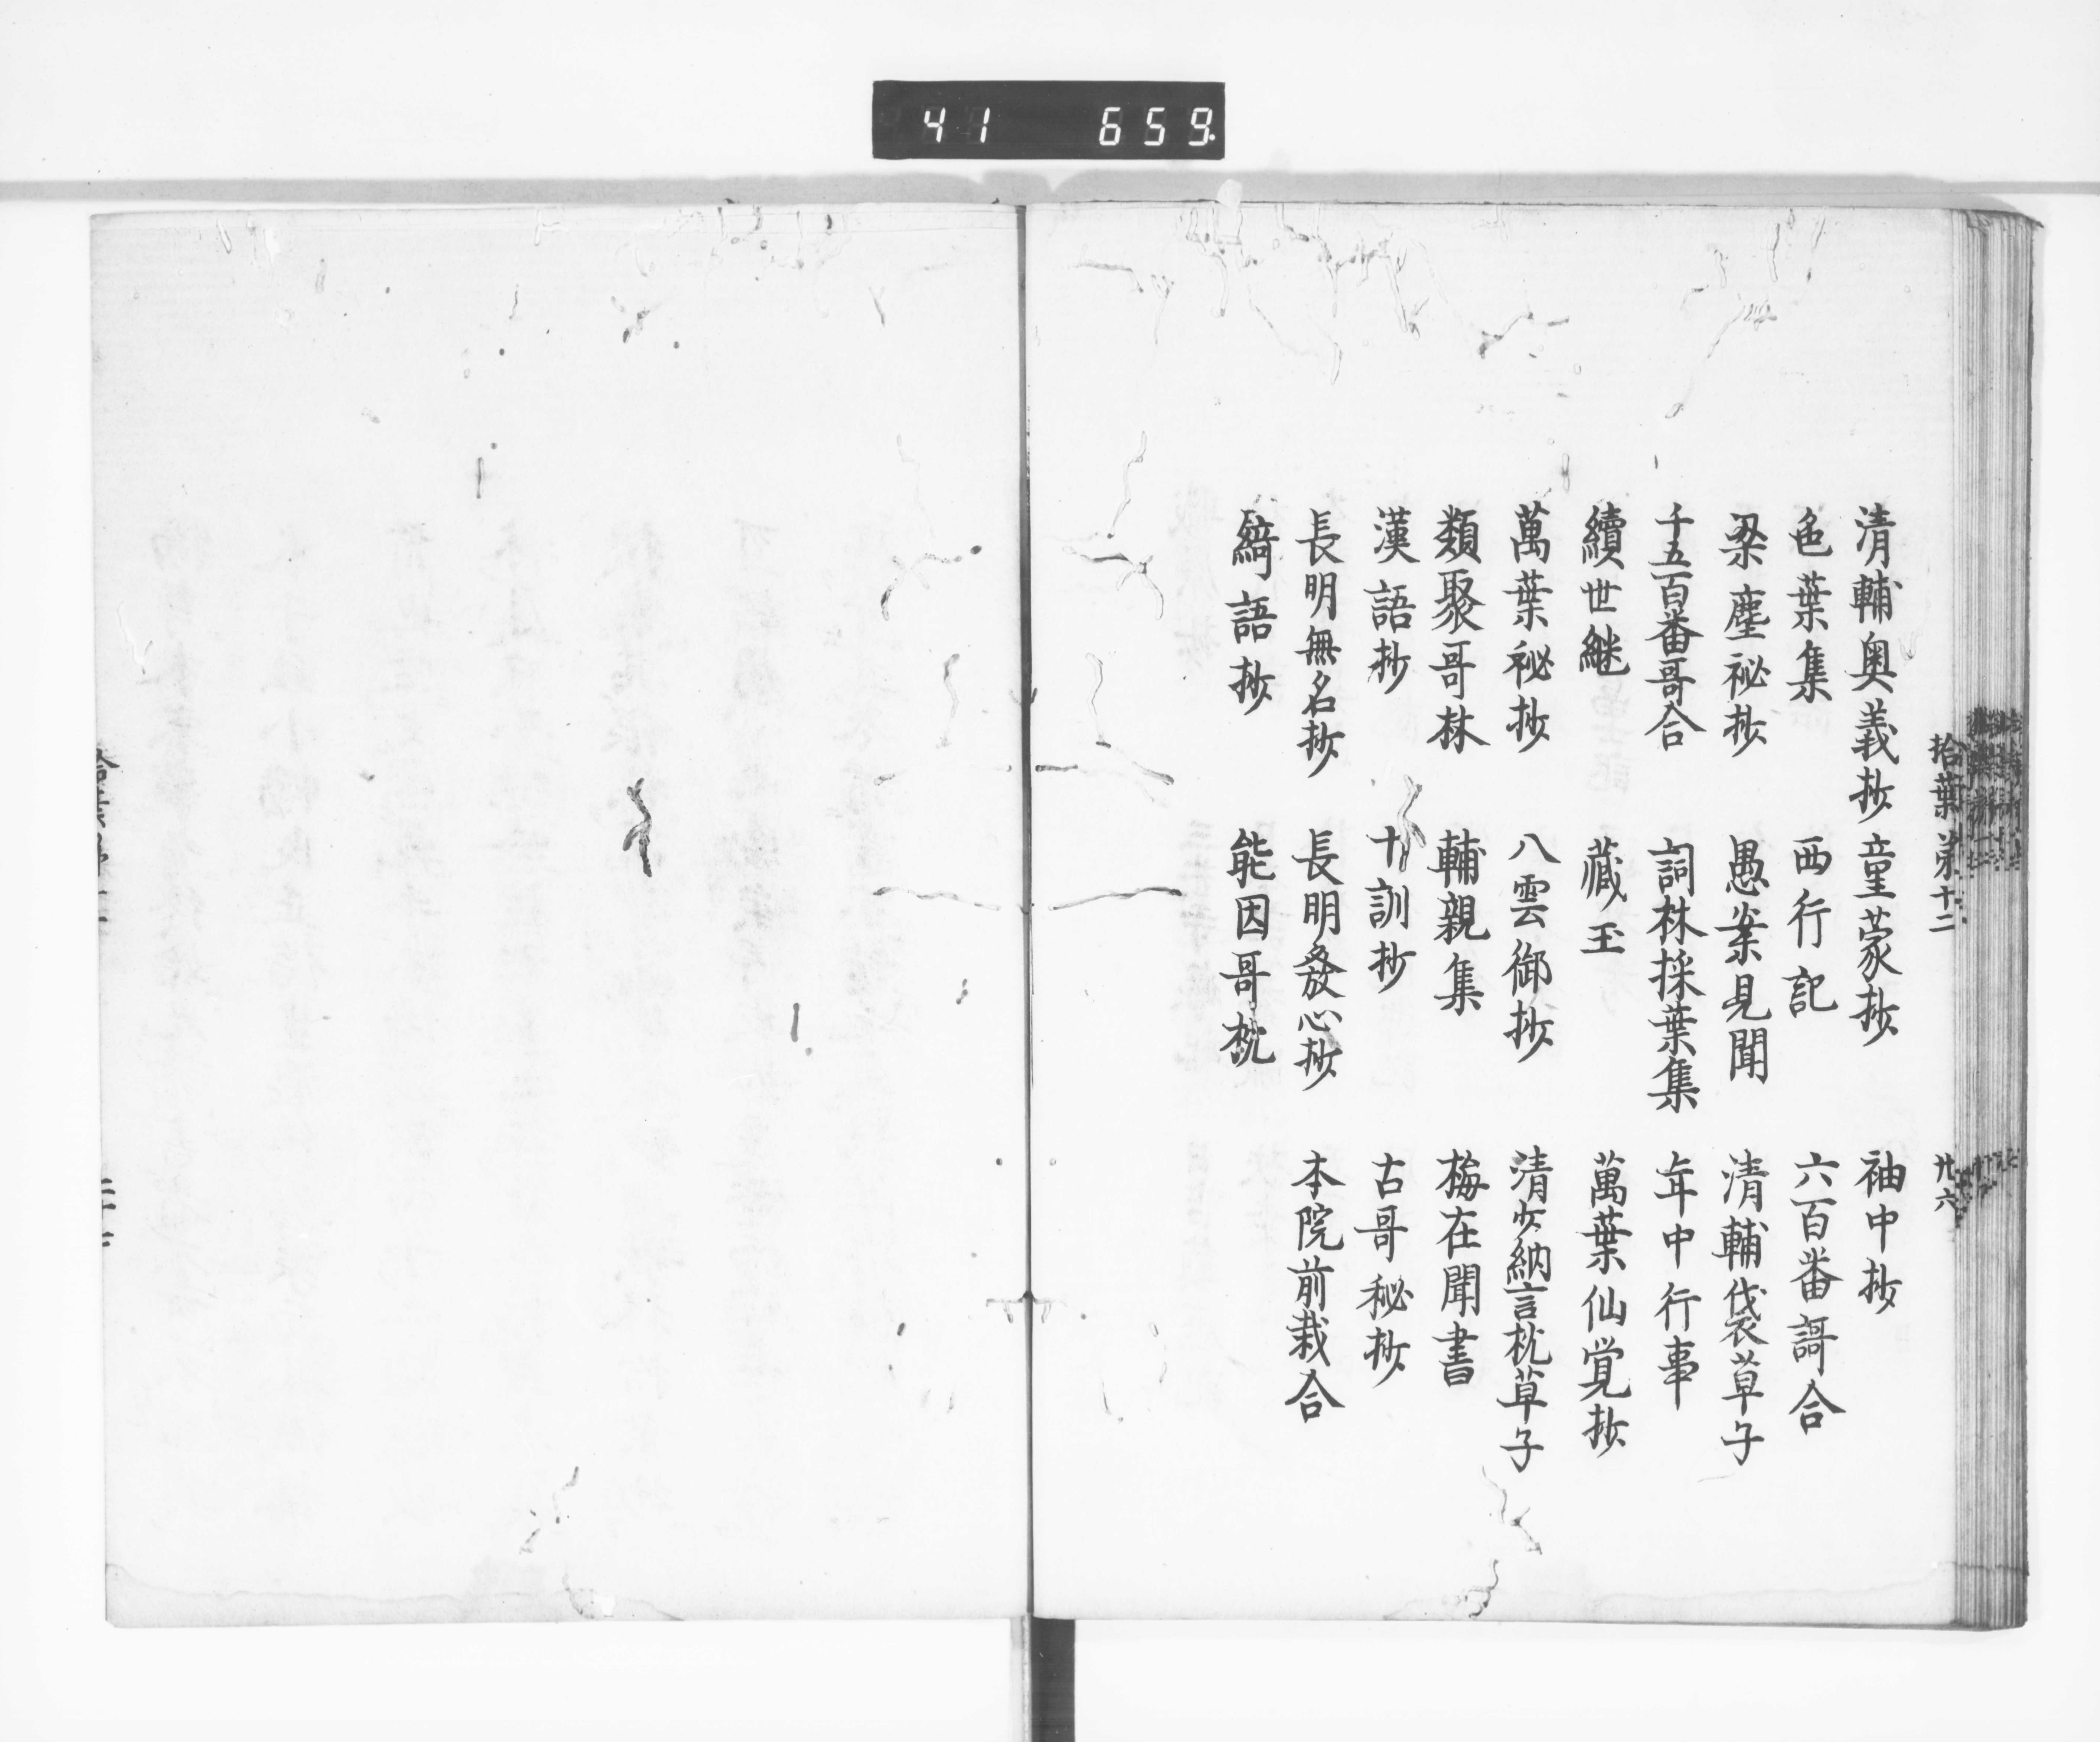 41 659
拾葉第十二 廿六
清輔奥義抄 童蒙抄 袖中抄
色葉集 西行記 六百番謌合
梁塵祕抄 愚案見聞 清輔袋草子
千五百番哥合 詞林採葉集 年中行事
續世継 蔵玉 萬葉仙覚抄
萬葉祕抄 八雲御抄 清少納言枕草子
類聚哥林 輔親集 梅在聞書
漢語抄 十訓抄 古哥秘抄
長明無名抄 長明發心抄 本院前栽合
綺語抄 能因哥枕